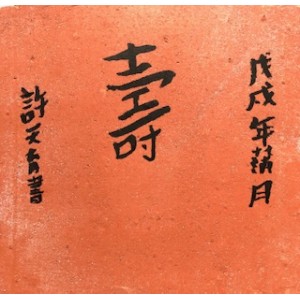 戊戌年菊月
壽
許天育書